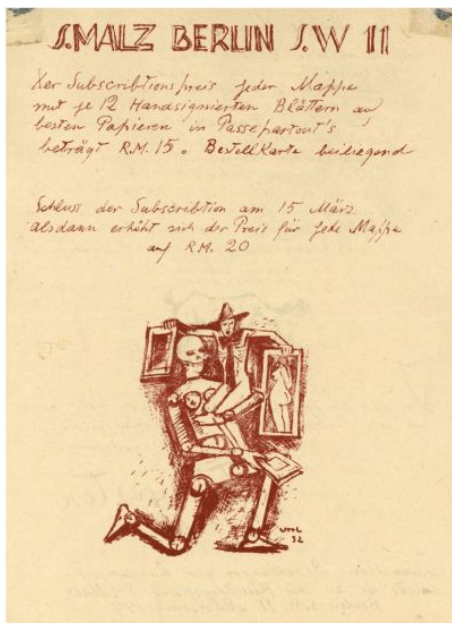 S.MALZ BERLIN S.W 11
Der Subscribtionspreis jeder Mappe
mit je 12 Handsignierten Blättern auf
besten Papieren in Passepartout's
beträgt R.M. 15. Bestellkarte beiliegend
Schluss der Subscribtion am 15 März
alsdann erhöht sich der Preis für jede Mappe
auf R.M. 20
32